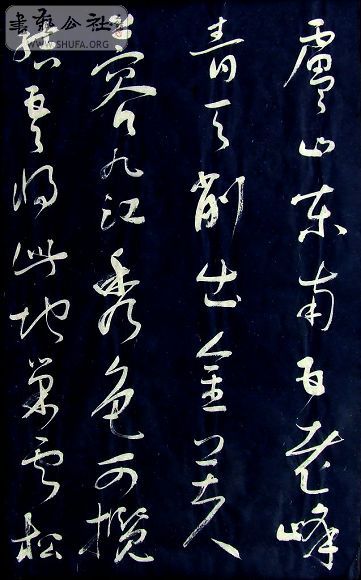 廬山東南五老峰
青天削出金芙
蓉九江秀色可攬
結吾將此地巢雲松
書法公社
WWW.SHUFA.ORG